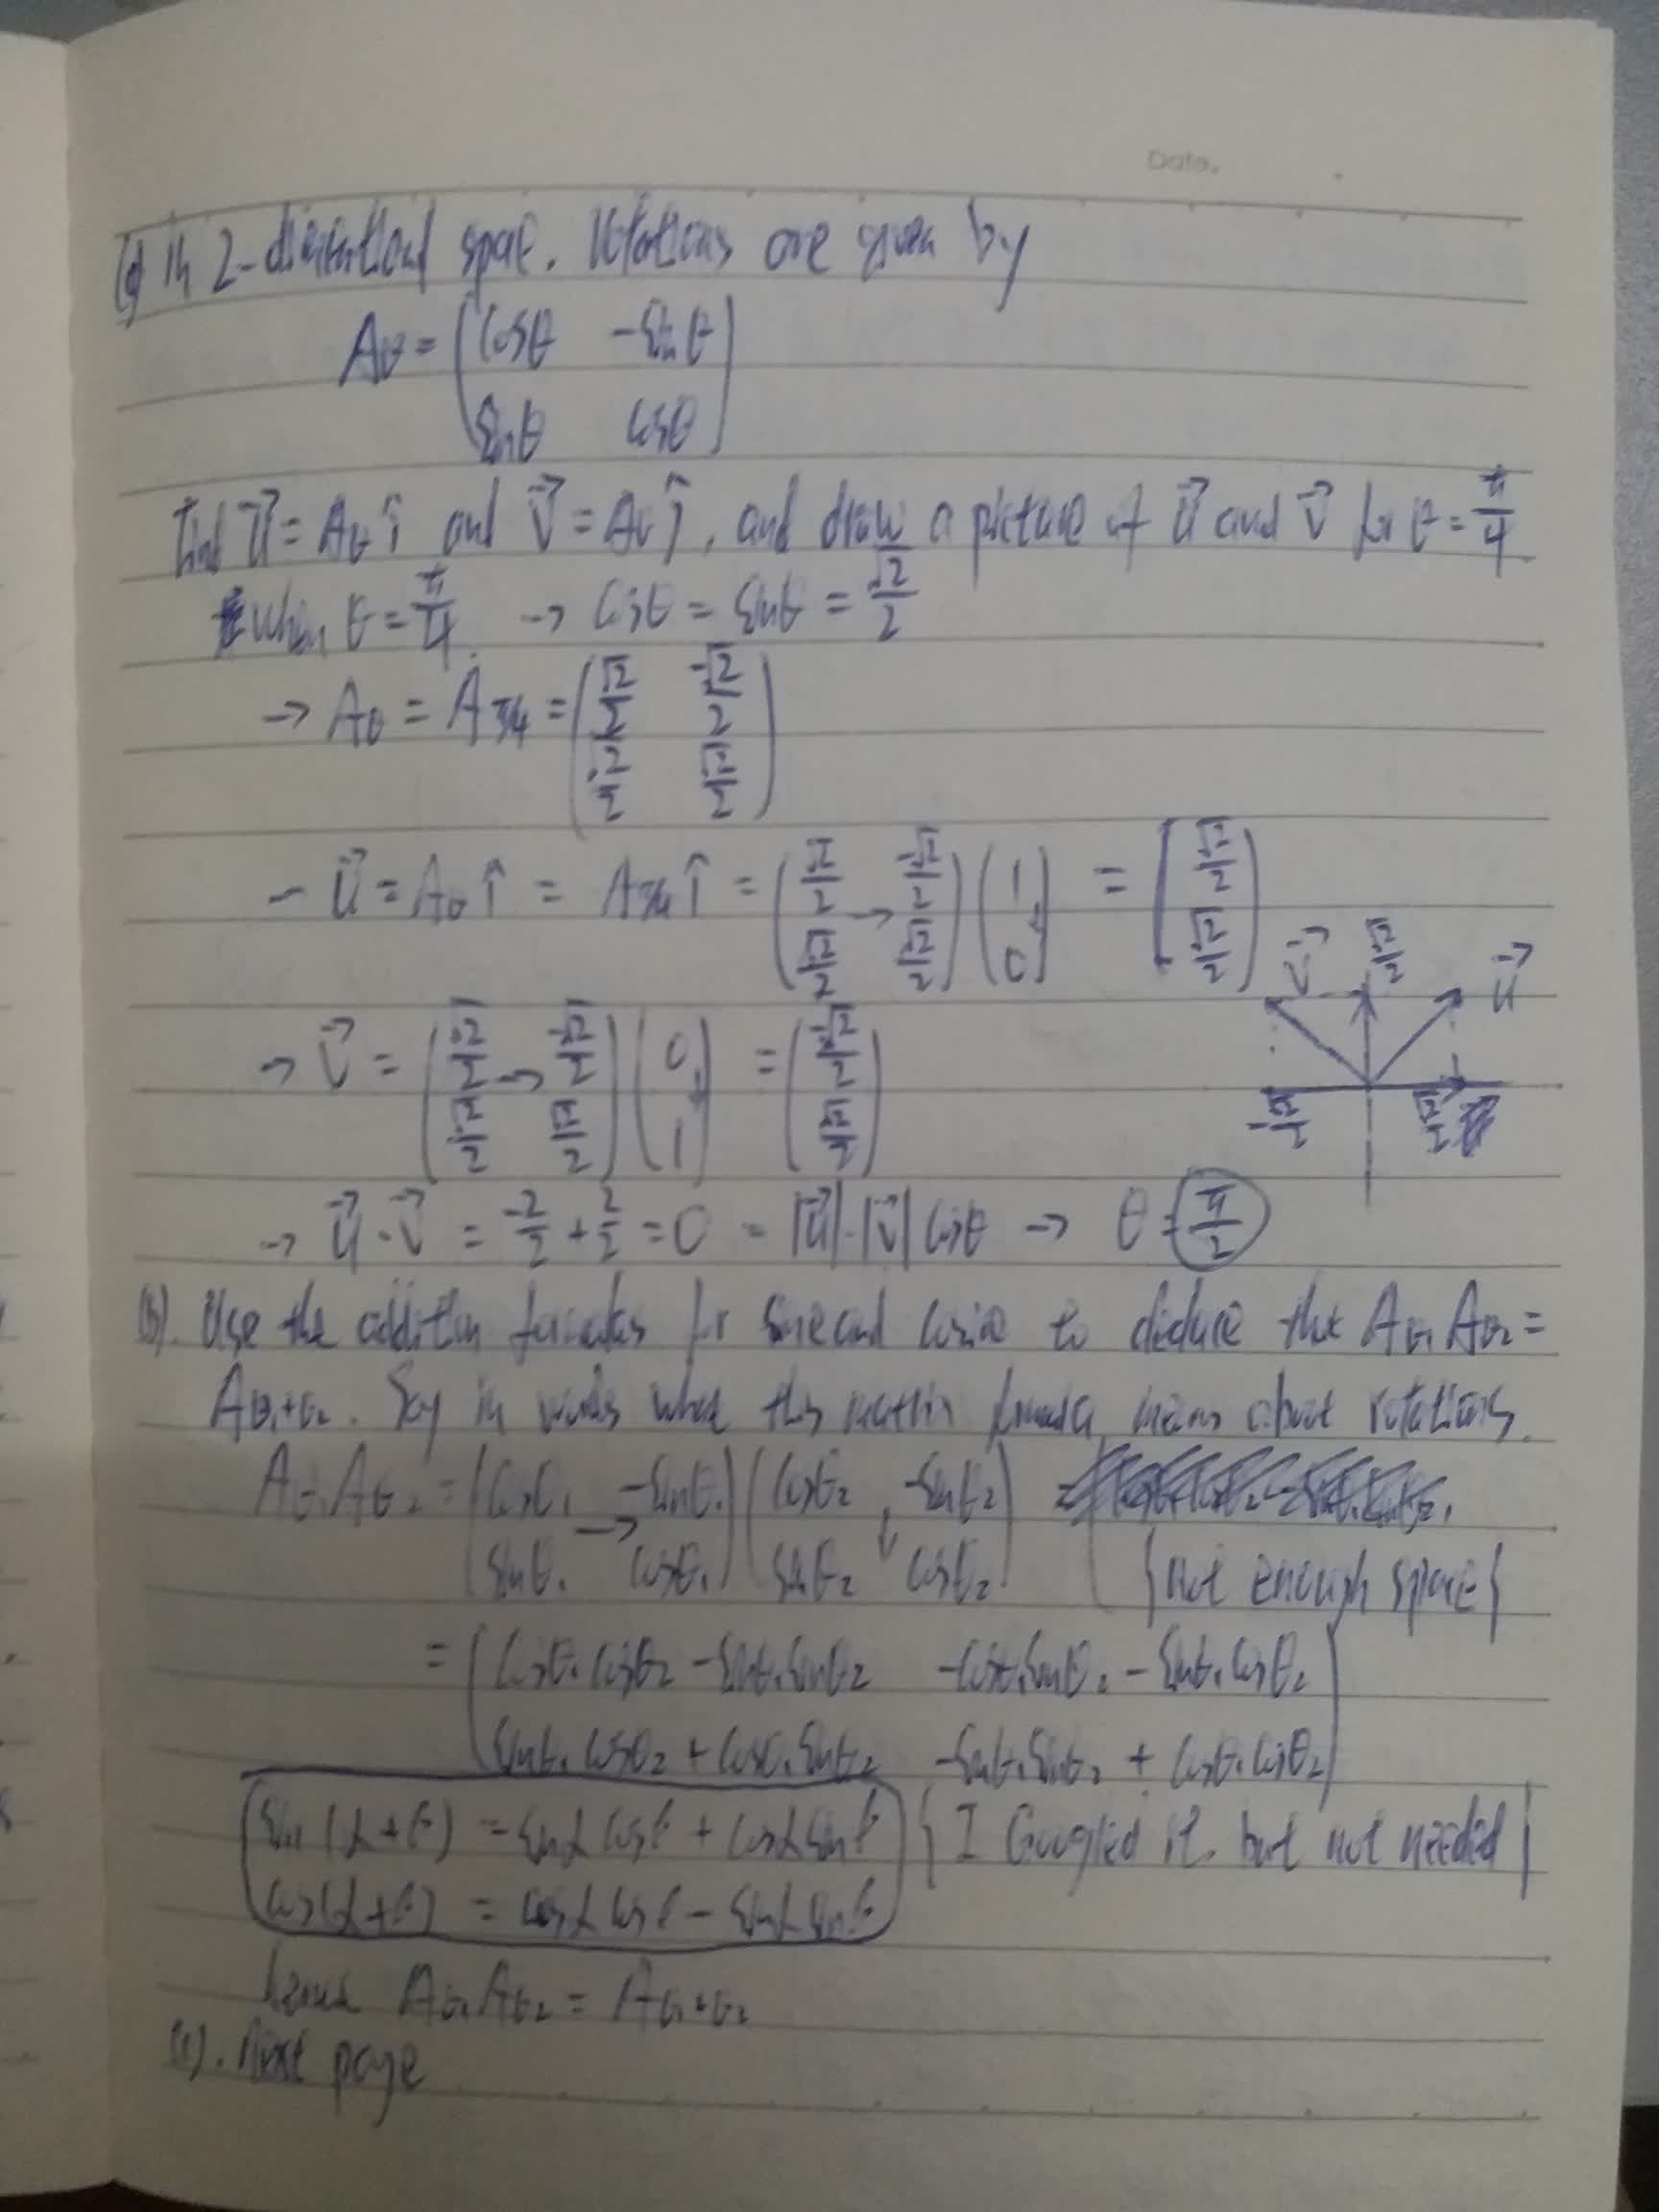 Date.
(a) In 2-dimensional space. Rotations are given by
Aθ = (cosθ -sinθ
sinθ cosθ)
Find u⃗ = Aθ î and v⃗ = Aθ ĵ, and draw a picture of u⃗ and v⃗ for θ = π/4
when θ = π/4. → cosθ = sinθ = √2/2
→ Aθ = Aπ/4 = (√2/2 -√2/2
√2/2 √2/2)
→ u⃗ = Aθ î = Aπ/4 î = (√2/2 → -√2/2
√2/2 √2/2) (1 ↓ 0) = [√2/2
√2/2)
v⃗ √2/2 u⃗
→ v⃗ = (√2/2 → -√2/2
√2/2 √2/2) (0 ↓ 1) = (-√2/2
√2/2)
-√2/2 √2/2
→ u⃗ · v⃗ = -2/2 + 2/2 = 0 = |u⃗|·|v⃗| cosθ → θ = π/2
(b). Use the addition formulas for sine and cosine to deduce that Aθ₁ Aθ₂ =
Aθ₁+θ₂. Say in words what this matrix formula means about rotations.
Aθ₁ Aθ₂ = (cosθ₁ → -sinθ₁
sinθ₁ cosθ₁) (cosθ₂ ↓ -sinθ₂
sinθ₂ cosθ₂)
{not enough space}
= (cosθ₁ cosθ₂ - sinθ₁ sinθ₂ -cosθ₁ sinθ₂ - sinθ₁ cosθ₂
sinθ₁ cosθ₂ + cosθ₁ sinθ₂ -sinθ₁ sinθ₂ + cosθ₁ cosθ₂)
sin(α+β) = sinα cosβ + cosα sinβ {I Googled it, but not needed}
cos(α+β) = cosα cosβ - sinα sinβ
hence Aθ₁ Aθ₂ = Aθ₁+θ₂
(c). Next page